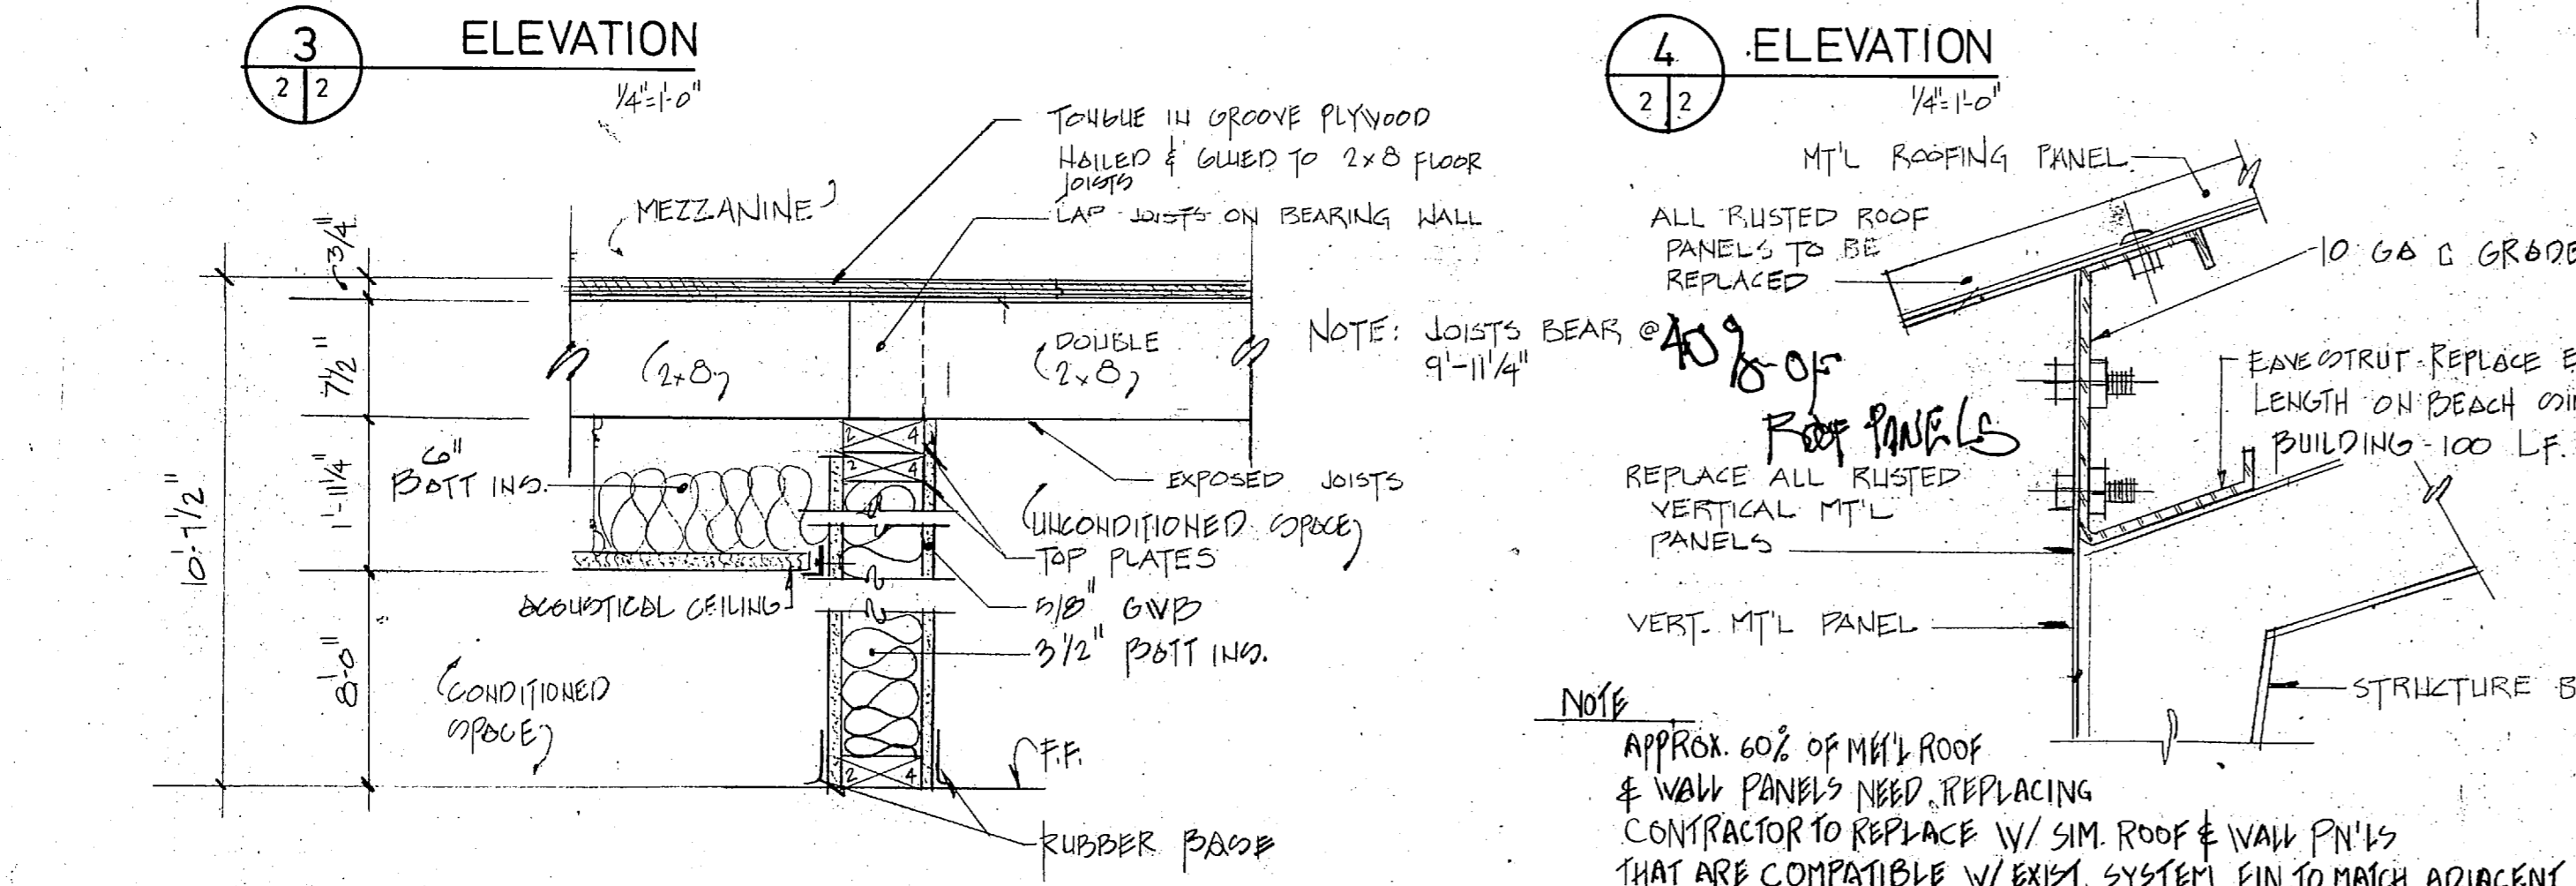 3
2 2
ELEVATION
1/4"=1'-0"
TONGUE IN GROOVE PLYWOOD
NAILED & GLUED TO 2x8 FLOOR
JOISTS
LAP JOISTS ON BEARING WALL
MEZZANINE
3/4"
7 1/2"
1'-11 1/4"
8'-0"
10'-7 1/2"
2x8
DOUBLE
2x8
NOTE: JOISTS BEAR @
9'-11 1/4"
6"
BATT INS.
2 4
2 4
EXPOSED JOISTS
UNCONDITIONED SPACE
TOP PLATES
ACOUSTICAL CEILING
5/8" GWB
3 1/2" BATT INS.
CONDITIONED
SPACE
2 4
F.F.
RUBBER BASE
4
2 2
ELEVATION
1/4"=1'-0"
MT'L ROOFING PANEL
ALL RUSTED ROOF
PANELS TO BE
REPLACED
10 GA C GRADE
40% OF
ROOF PANELS
EAVE STRUT-REPLACE E
LENGTH ON BEACH SI
BUILDING-100 L.F.
REPLACE ALL RUSTED
VERTICAL MT'L
PANELS
VERT. MT'L PANEL
STRUCTURE B
NOTE
APPROX. 60% OF MET'L ROOF
& WALL PANELS NEED REPLACING
CONTRACTOR TO REPLACE W/ SIM. ROOF & WALL PN'LS
THAT ARE COMPATIBLE W/ EXIST. SYSTEM FIN TO MATCH ADJACENT